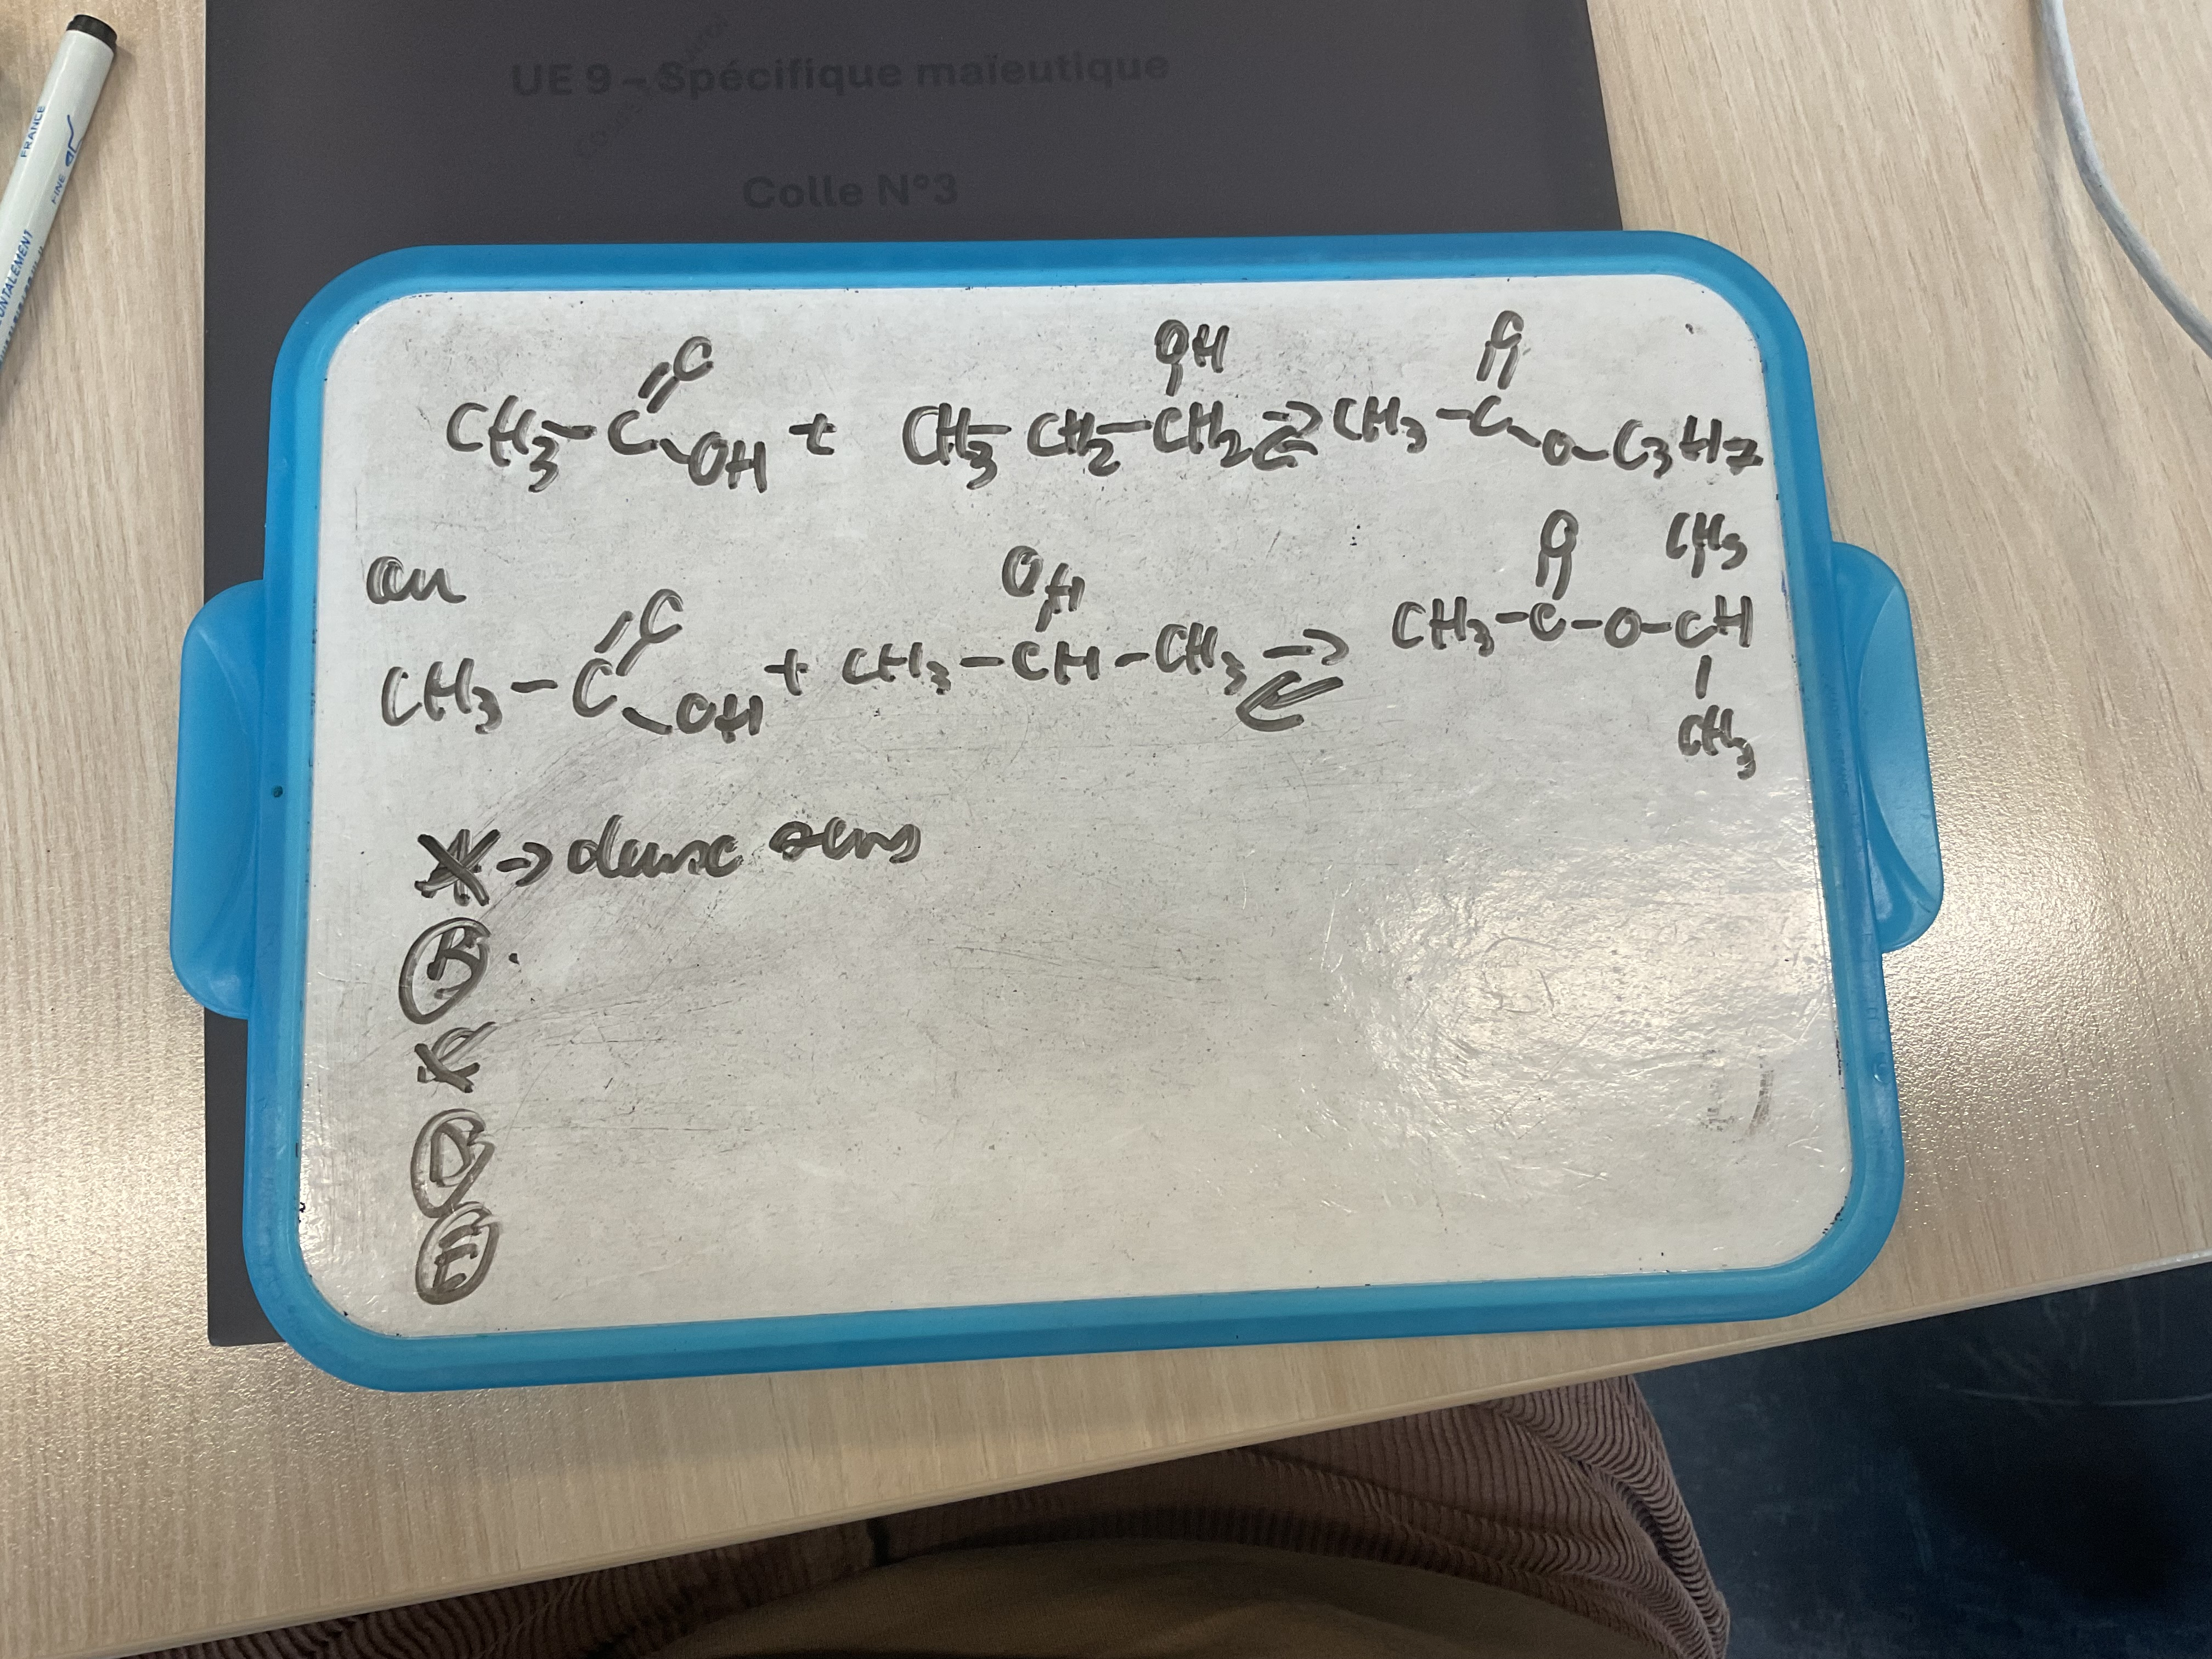 UE 9 – Spécifique maïeutique
Colle N°3
FRANCE
FINE
OH O
CH3-C=O OH + CH3-CH2-CH2 ⇄ CH3-C O-C3H7
ou
OH O CH3
CH3-C=O OH + CH3-CH-CH3 ⇄ CH3-C-O-CH
CH3
A → deux sens
B
C
D
E